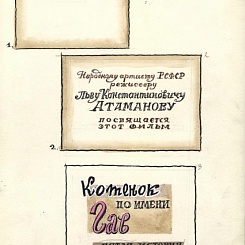 1.
Народному артисту РСФСР
режиссеру
Льву Константиновичу
АТАМАНОВУ
ПОСВЯЩАЕТСЯ
ЭТОТ ФИЛЬМ
2.
3
Котенок
ПО ИМЕНИ
Гав